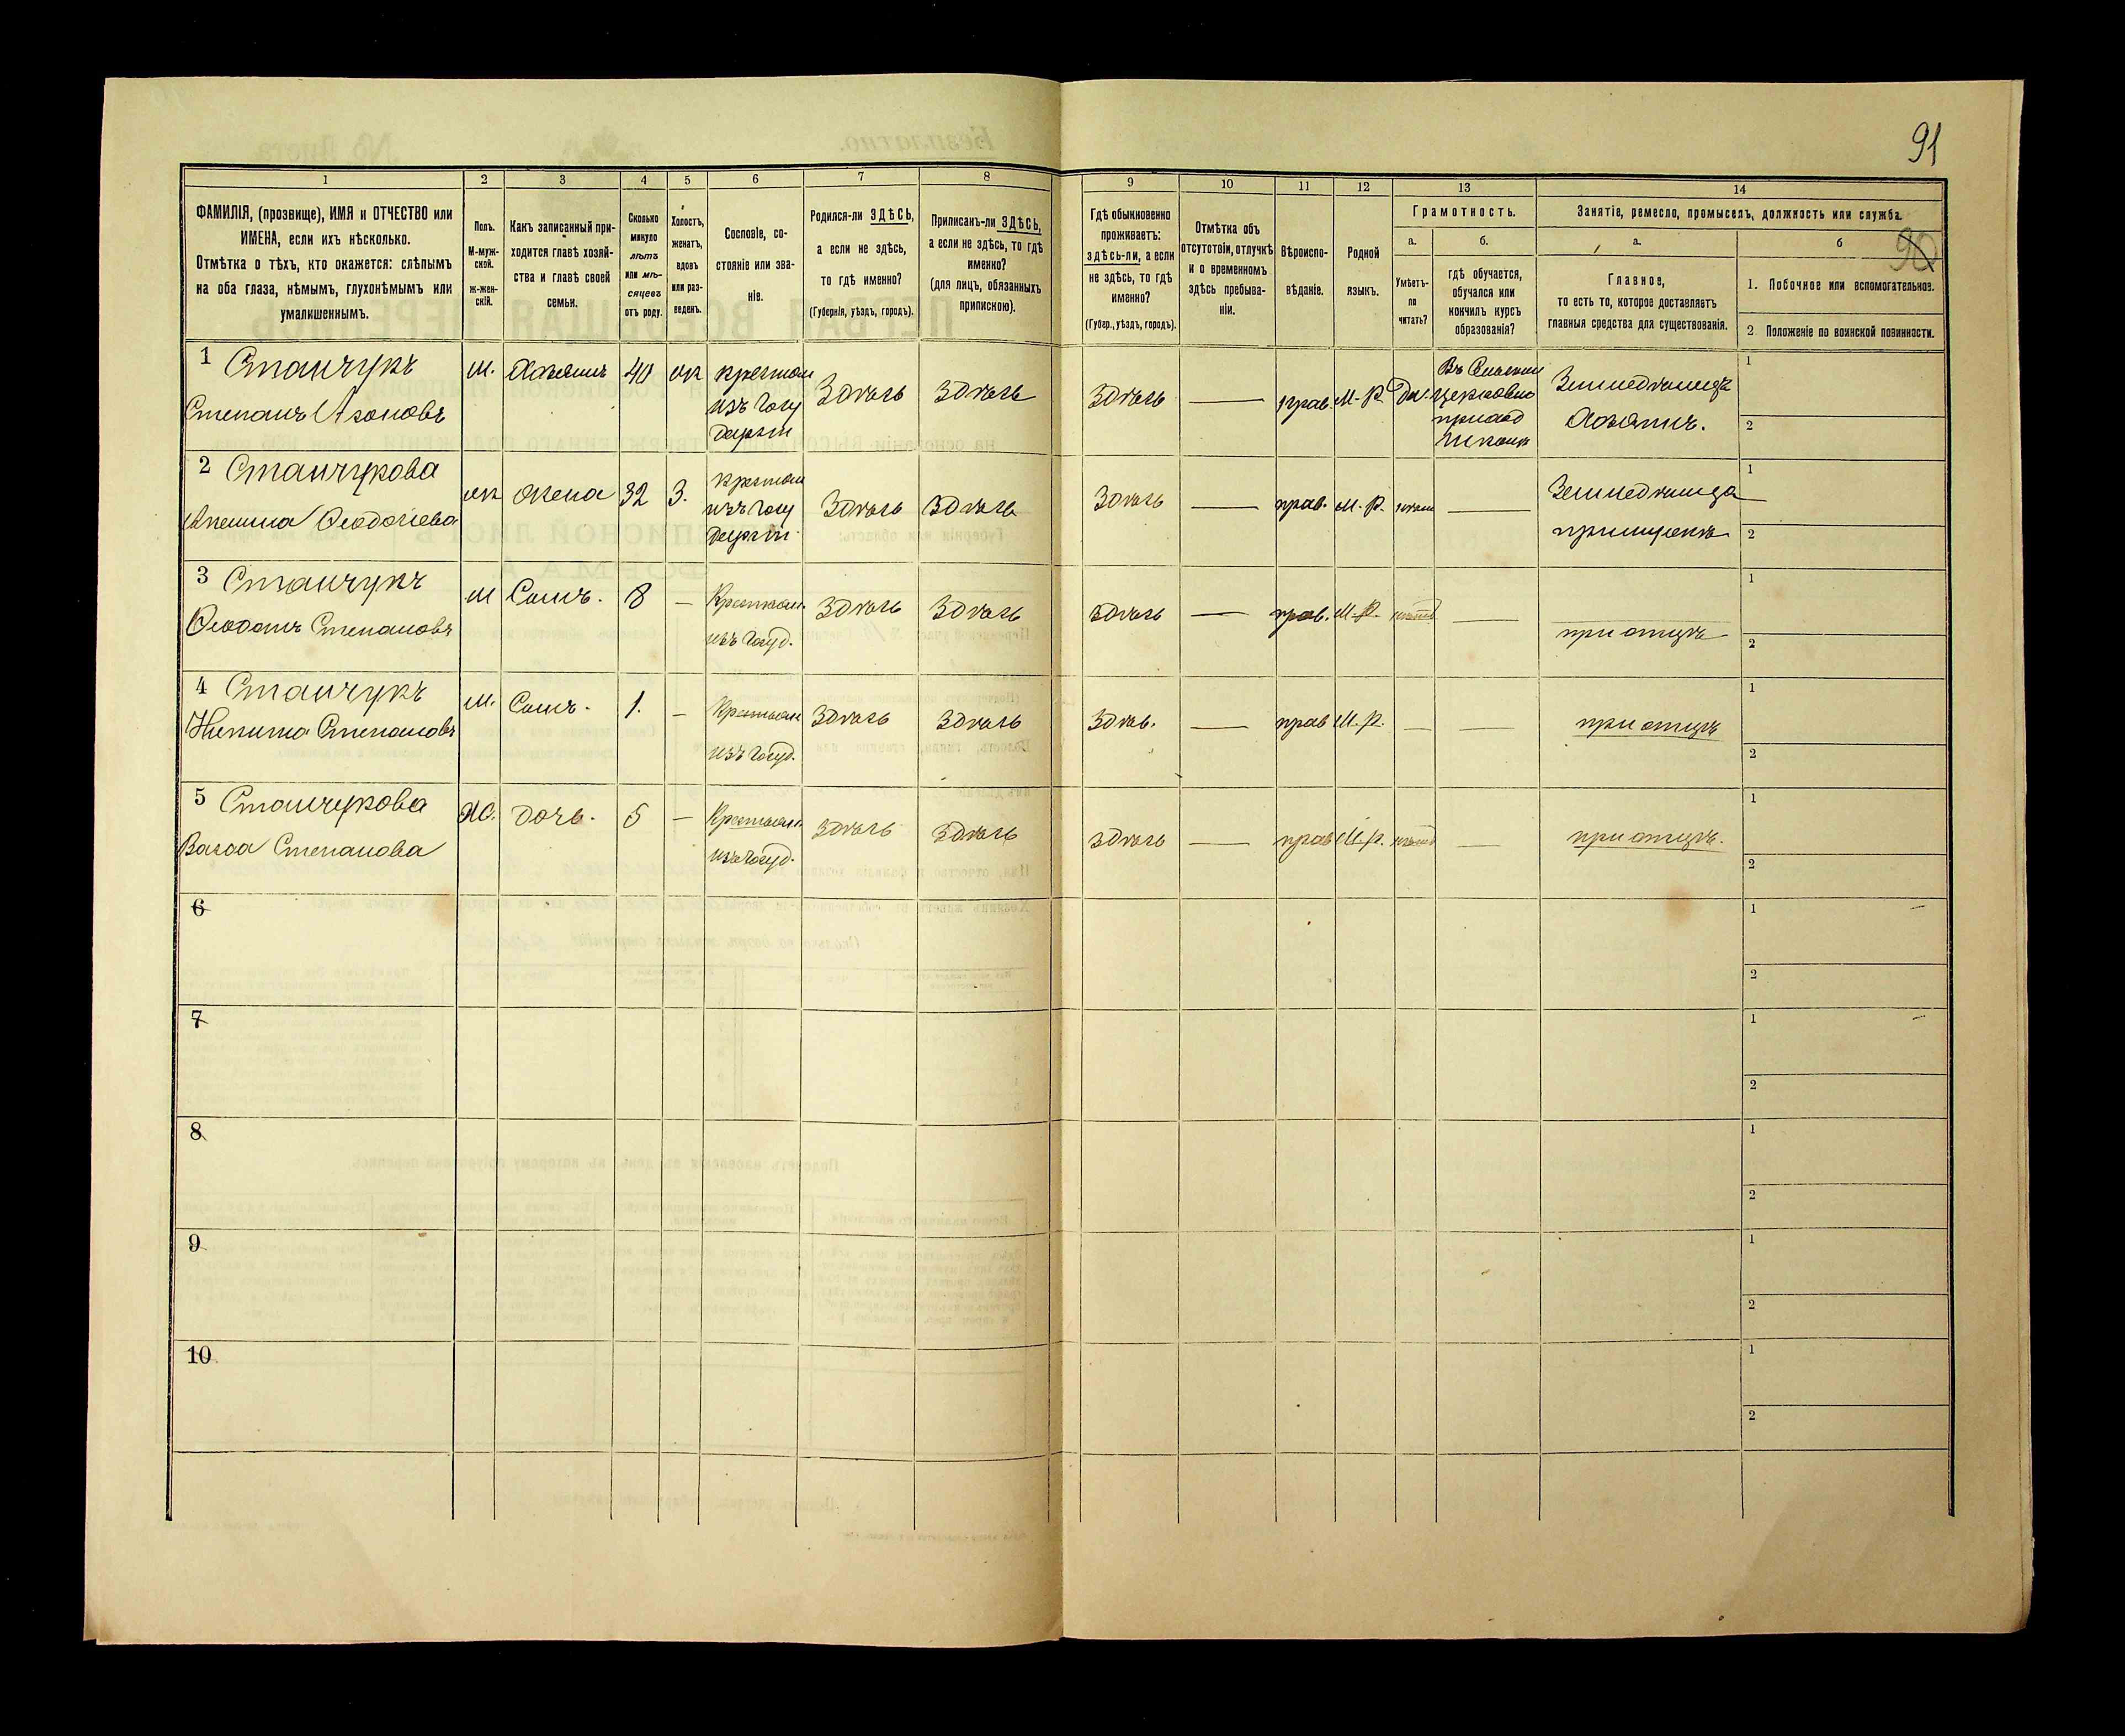 91
1 2 3 4 5 6 7 8 9 10 11 12 13 14
ФАМИЛІЯ, (прозвище), ИМЯ и ОТЧЕСТВО или
ИМЕНА, если ихъ нѣсколько.
Отмѣтка о тѣхъ, кто окажется: слѣпымъ
на оба глаза, нѣмымъ, глухонѣмымъ или
умалишеннымъ.
Полъ.
М-муж-
ской.
ж-жен-
скій.
Какъ записанный при-
ходится главѣ хозяй-
ства и главѣ своей
семьи.
Сколько
минуло
лѣтъ
или мѣ-
сяцевъ
отъ роду.
Холостъ,
женатъ,
вдовъ
или раз-
веденъ.
Сословіе, со-
стояніе или зва-
ніе.
Родился-ли ЗДѢСЬ,
а если не здѣсь,
то гдѣ именно?
(Губернія, уѣздъ, городъ).
Приписанъ-ли ЗДѢСЬ,
а если не здѣсь, то гдѣ
именно?
(для лицъ, обязанныхъ
припискою).
Гдѣ обыкновенно
проживаетъ:
здѣсь-ли, а если
не здѣсь, то гдѣ
именно?
(Губер., уѣздъ, городъ).
Отмѣтка объ
отсутствіи, отлучкѣ
и о временномъ
здѣсь пребыва-
ніи.
Вѣроиспо-
вѣданіе.
Родной
языкъ.
Грамотность.
а.
Умѣетъ-
ли
читать?
б.
гдѣ обучается,
обучался или
кончилъ курсъ
образованія?
Занятіе, ремесло, промыселъ, должность или служба.
а.
Главное,
то есть то, которое доставляетъ
главныя средства для существованія.
б
90
1. Побочное или вспомогательное.
2 Положеніе по воинской повинности.
1 Станчукъ
Степанъ
м. Хозяинъ 40 ж крестьян
изъ Госу
Здѣсь Здѣсь Здѣсь — прав. М.-р. Да.
церковно
приход
Земледѣлецъ
Хозяинъ.
1
2
2 Станчукова
Феодосіева
жена 32 З. крестьян
изъ Госу
Здѣсь Здѣсь Здѣсь — прав. М. р. —
1
2
3 Станчукъ
Степановъ
М Сынъ. 8 — Крестьян.
изъ Госуд.
Здѣсь Здѣсь Здѣсь — прав. М.-р. нѣтъ —
при отцѣ
1
2
4 Станчукъ
Никита Степановъ
М. Сынъ. 1. — Крестьян
изъ Госуд.
Здѣсь Здѣсь Здѣс. — прав М. р. — —
при отцѣ
1
2
5 Станчукова
Васса Степанова
Ж. дочь. 5 — Крестьян.
изъ Госуд.
Здѣсь Здѣсь Здѣсь — прав М. р. нѣтъ —
при отцѣ.
1
2
6
1
2
7
1
2
8
1
2
9
1
2
10
1
2